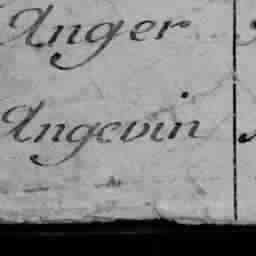 Anger
Angevin